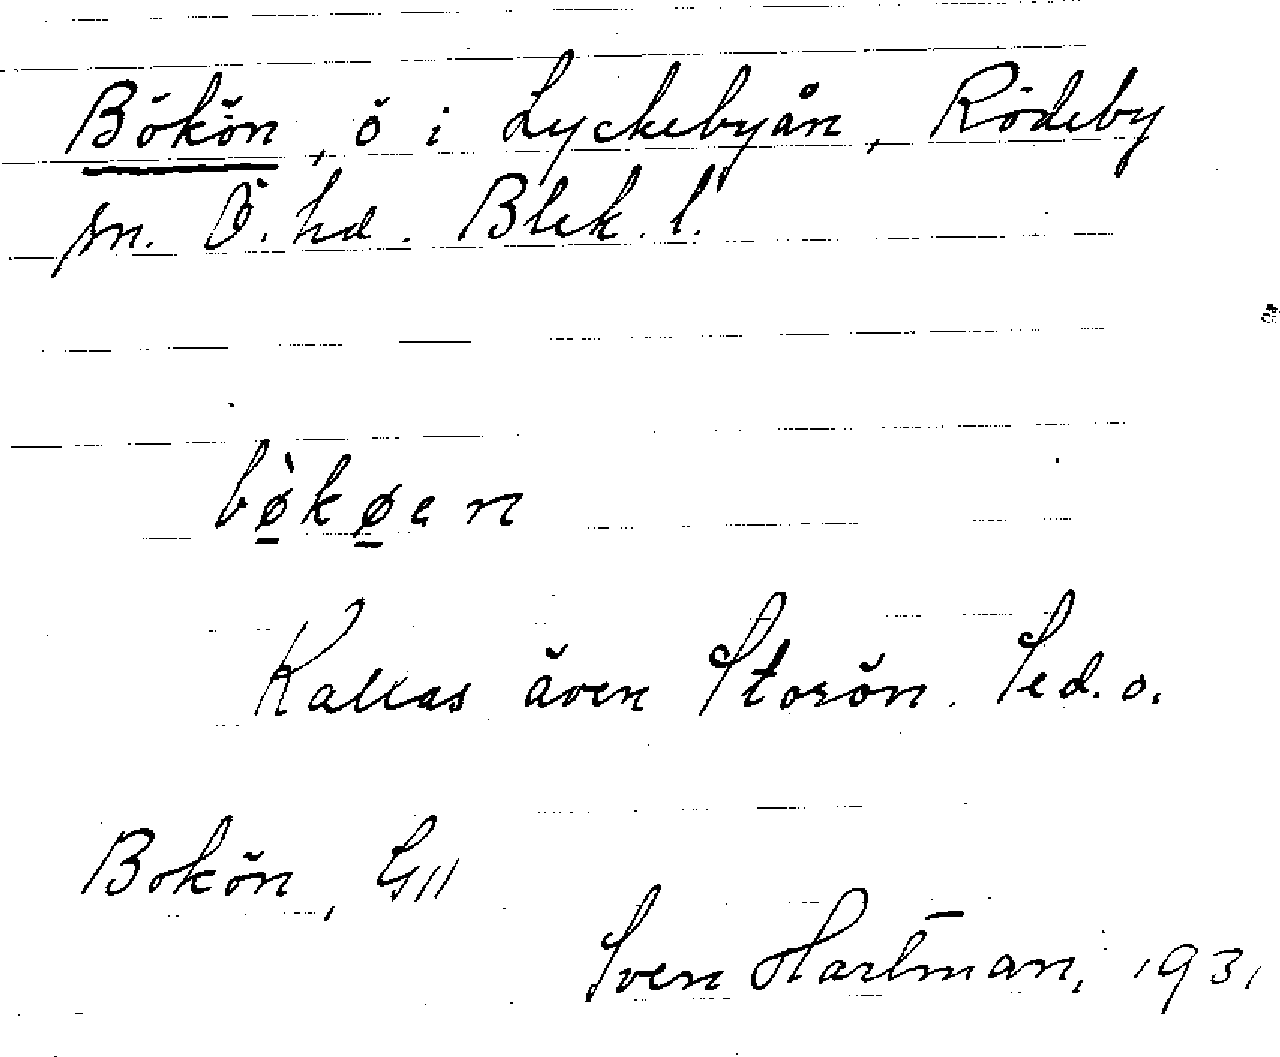 Bökön, ö i Lyckebyån, Rödeby
sn. Ö. hd. Blek. l.
bø̠̀kø̠en
Kallas även Storön. Sed. o.
Bokön, G11
Sven Hartman, 1931